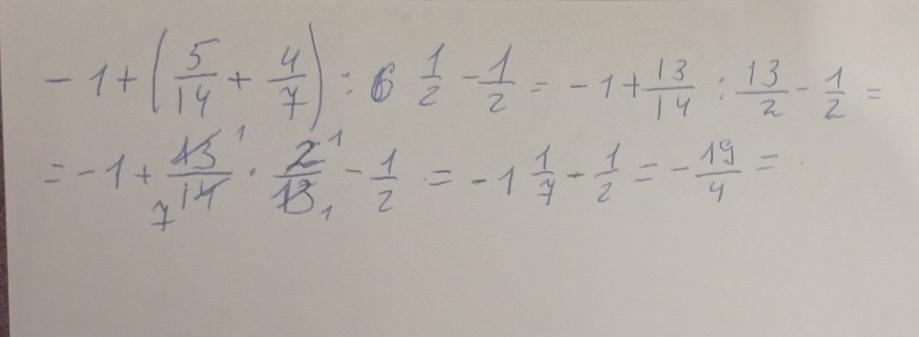 -1+(5/14+4/7):6 1/2-1/2=-1+13/14:13/2-1/2=
=-1+13/14·2/13-1/2=-1 1/7-1/2=-19/4=